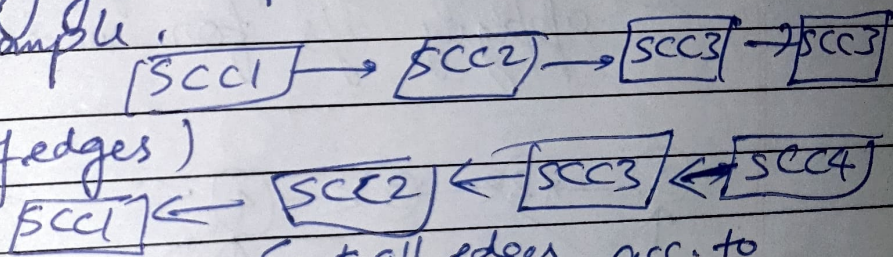 SCC1 → SCC2 → SCC3 → SCC3
edges)
SCC1 ← SCC2 ← SCC3 ← SCC4
all edges acc. to